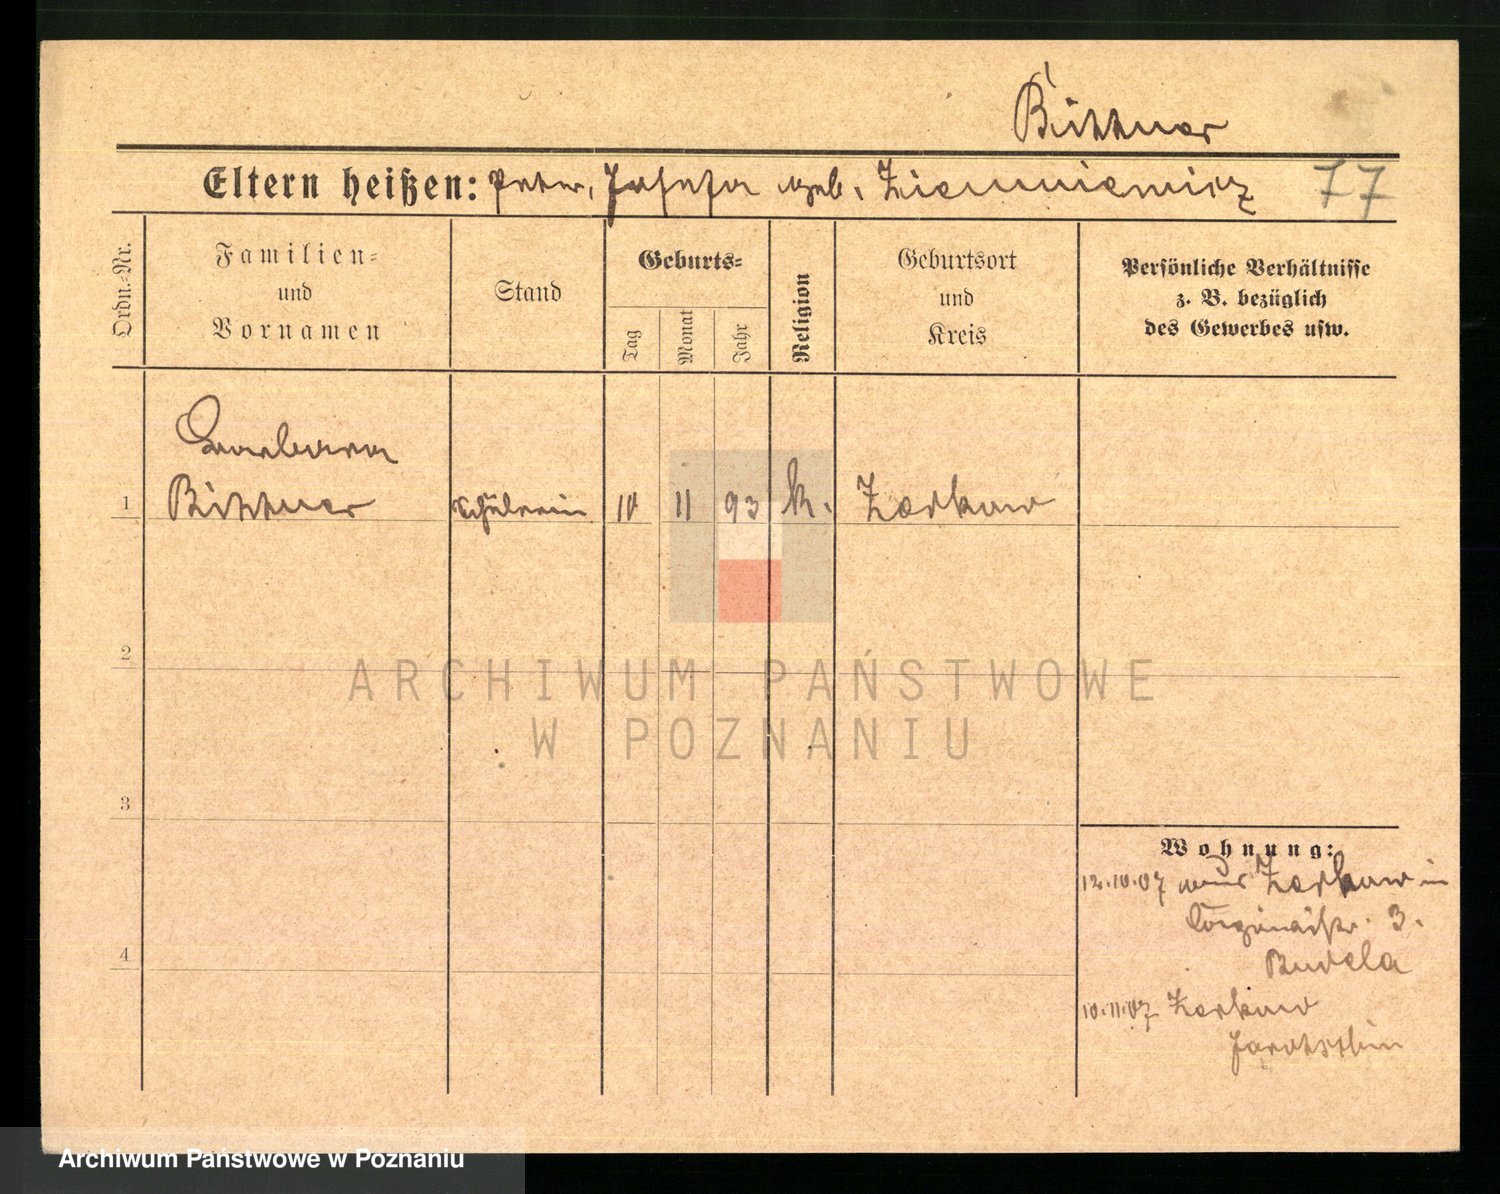 Büttner
Eltern heißen: Peter, Josefa geb. Ziemniewicz 77
Ordn.-Nr.
Familien-
und
Vornamen
Stand
Geburts-
Tag
Monat
Jahr
Religion
Geburtsort
und
Kreis
Persönliche Verhältnisse
z. B. bezüglich
des Gewerbes usw.
Barbara
1 Büttner Schülerin 10 11 93 k. Zerkow
2
ARCHIWUM PAŃSTWOWE
W POZNANIU
3
Wohnung:
12.10.07 aus Zerkow in
3.
Budela
4
10.11.07 Zerkow
Jarotschin
Archiwum Państwowe w Poznaniu